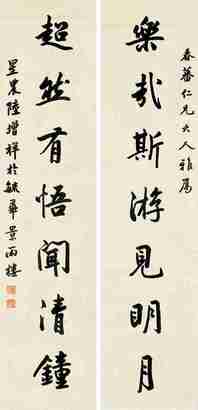 春蕃仁兄大人雅属
樂哉斯游見明月
超然有悟聞清鐘
星農陸增祥於毓華景丙樓